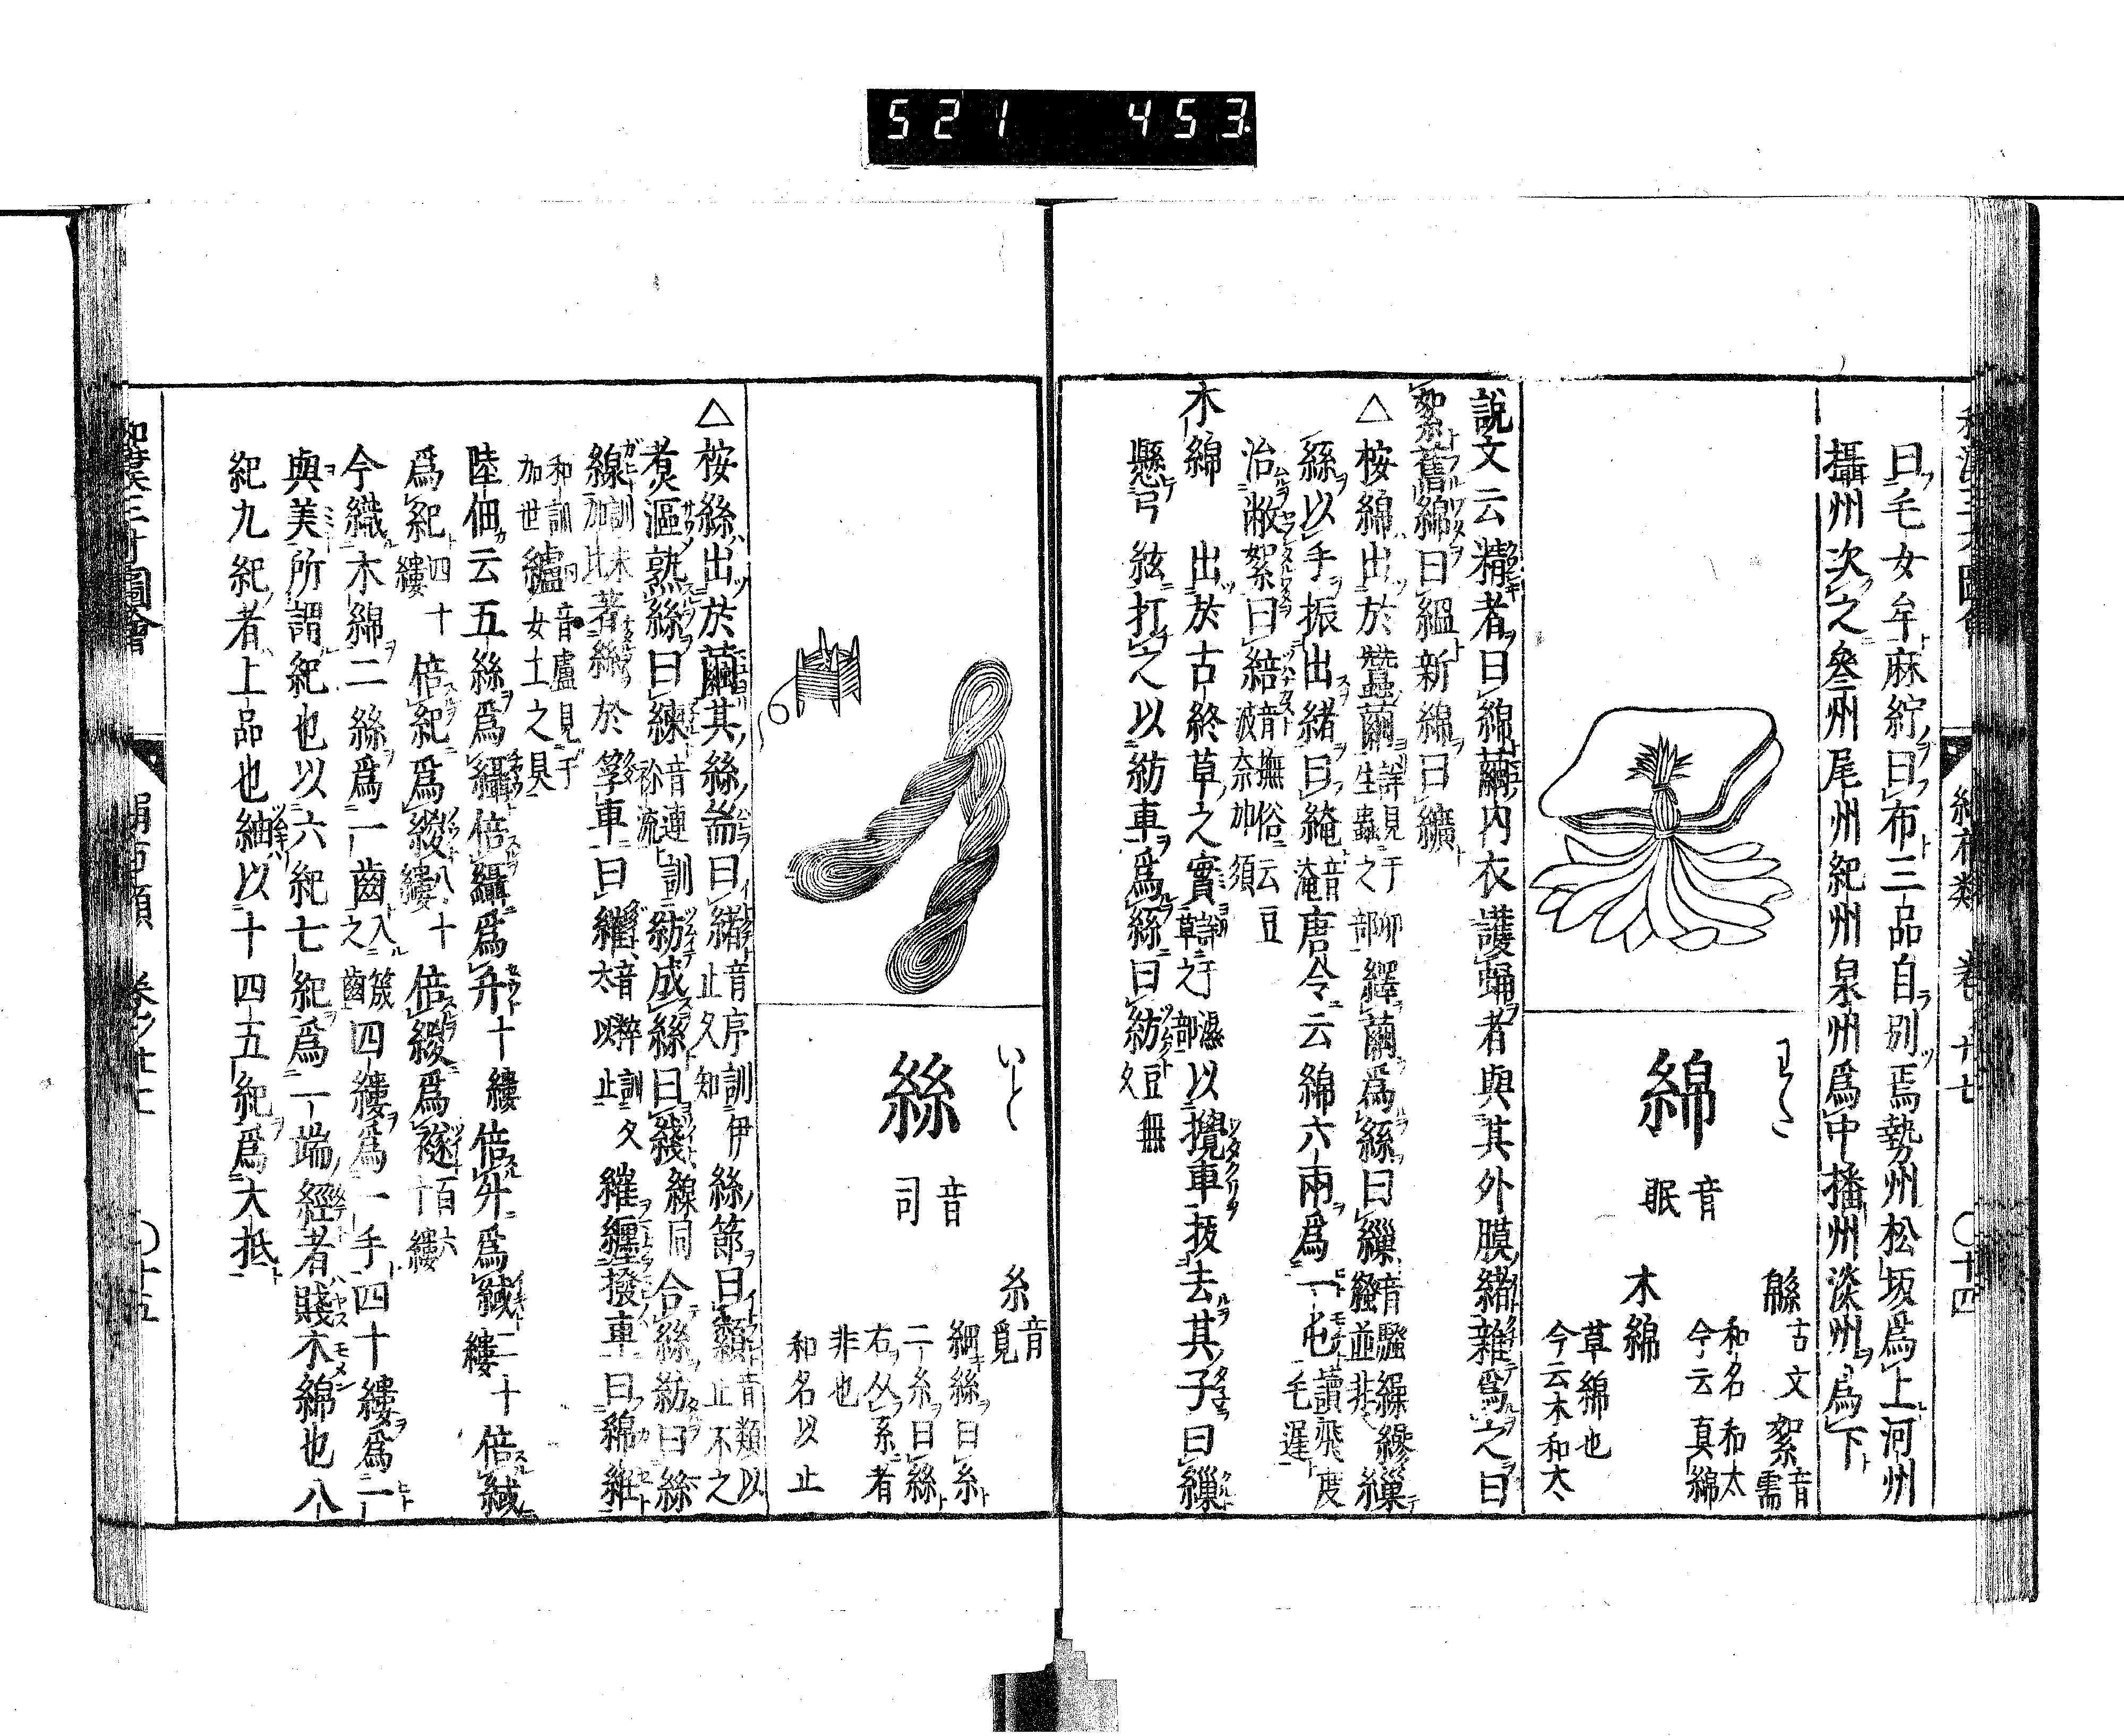 521 453
曰毛女牟麻紵曰布三品自別焉勢州松坂爲上河州
攝州次之參州尾州紀州泉州爲中播州淡州爲下
わた
綿
音眠
緜 古文 絮 音需
和名和太
今云真綿
木綿
草綿也
今云木和太
說文云精者曰綿繭內衣護蛹者與其外膜緒雜爲之曰
絮舊綿曰縕新綿曰纊
△按綿出於蠶繭 詳見于卵生蟲之部 繹繭爲絲曰繅 音騷 繰繆繅
絲以手振出緒曰䋈 音淹 唐令云綿六兩爲一屯 讀飛度毛遲
治敝絮曰䋨 音撫俗云豆波奈加須
木綿 出於古終草之實 詳于濕草之部 以攪車拔去其子曰繅
懸弓弦打之以紡車爲絲曰紡 豆無久
いと
絲
音司
糸 音覓
細絲曰糸
二糸曰絲
右从系者
非也
和名以止
△按絲出於繭其絲耑曰緒 音序訓伊止久知 絲節曰纇 音類以止不之
煑漚熟絲曰練 音連訓祢流 紡成絲曰綫 線同 合絲紡曰絲
線 訓加比 著絲於䈅車曰維 音碎訓久太以止 纏撥車曰綿維
和訓加世 纑 音盧見于女土之具
陸佃云五絲爲䌰倍䌰爲升 十縷 倍升爲緎 二十縷 倍緎
爲紀 四十縷 倍紀爲緵 八十縷 倍緵爲襚 百六十縷
今織木綿二絲爲一齒 入筬之齒 四縷爲一手四十縷爲一
與美所謂紀也以六紀七紀爲一端經者賤木綿也八
紀九紀者上品也紬以十四五紀爲大抵
絹布類 卷ノ廿七 〇十四
和漢三才圖會 絹布類 卷ノ廿七 〇十五